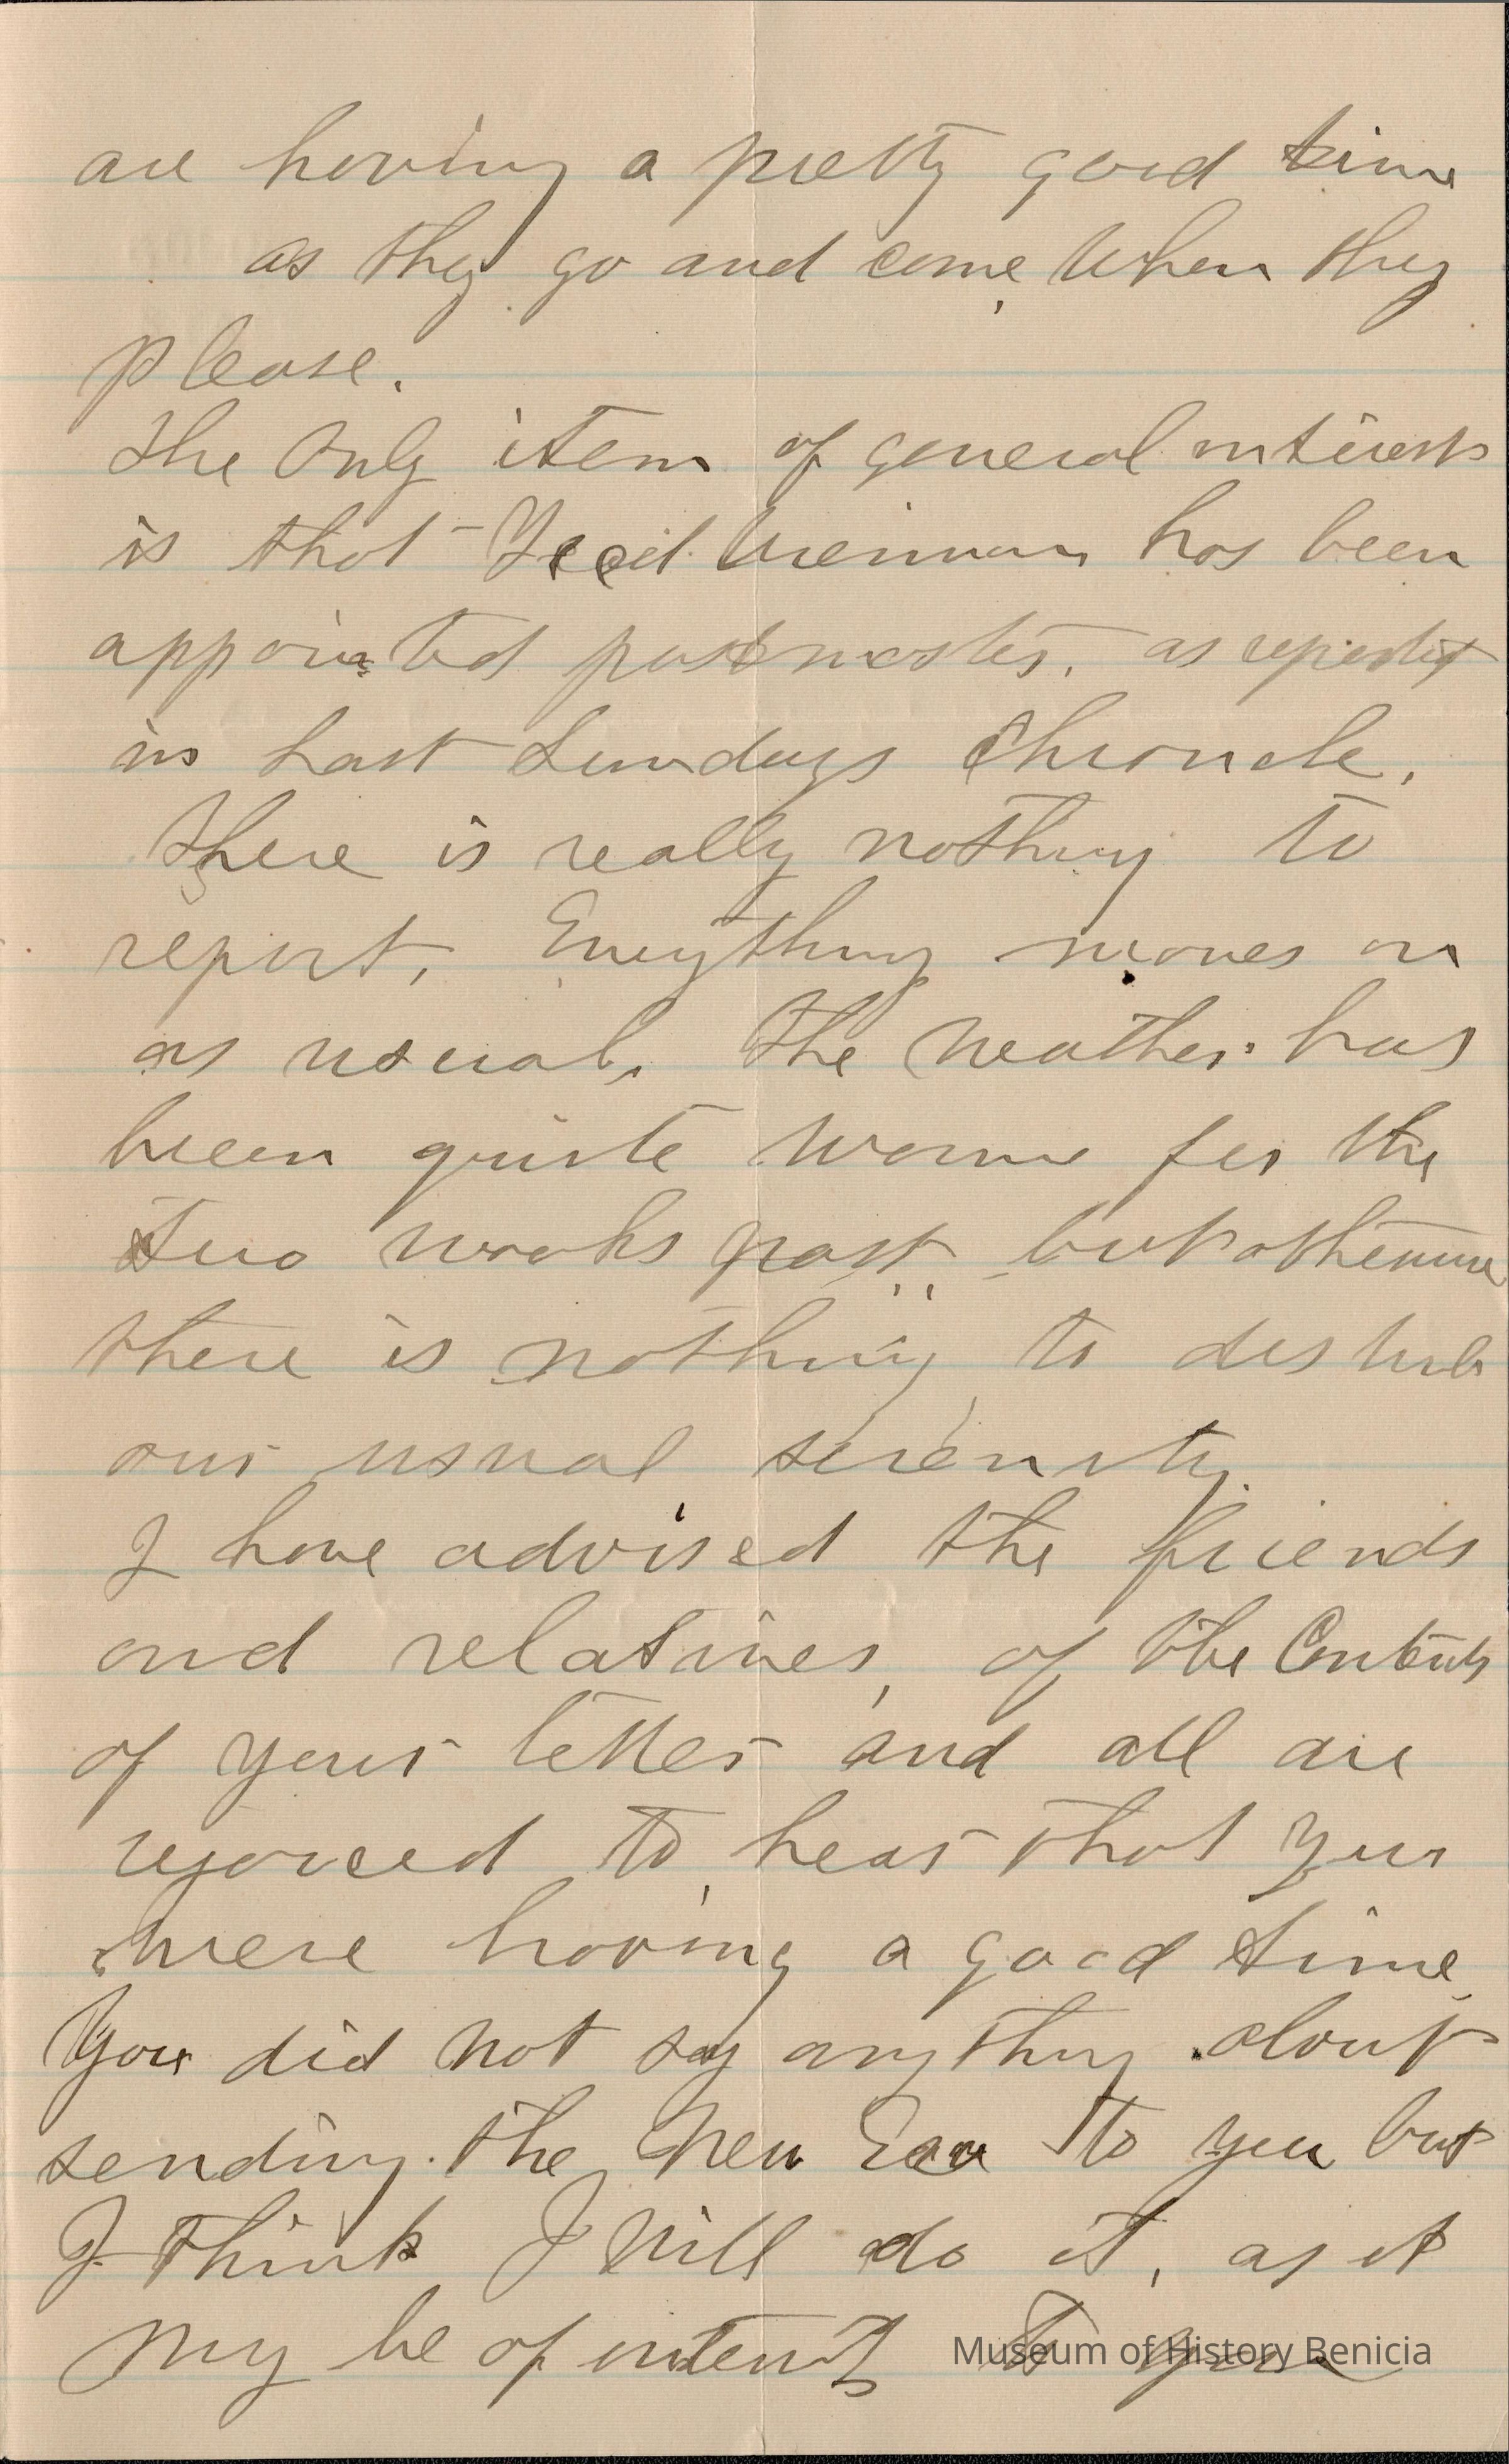 are having a pretty good time
as they go and come when they
please.
The only item of general interest
is that has been
appointed postmaster. as reported
in Last Sundays Chronicle.
There is really nothing to
report. Everything moves on
as usual. The weather has
been quite warm for the
two weeks past, but otherwise
there is nothing to disturb
our usual serenity.
I have advised the friends
and relatives, of the Contents
of your letter and all are
rejoiced to hear that you
were having a good time
You did not say anything about
sending the New Era to you but
I think I will do it, as it
may be of interest to you
Museum of History Benicia